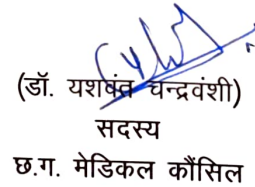 (डॉ. यशवंत चन्द्रवंशी)
सदस्य
छ.ग. मेडिकल कौंसिल